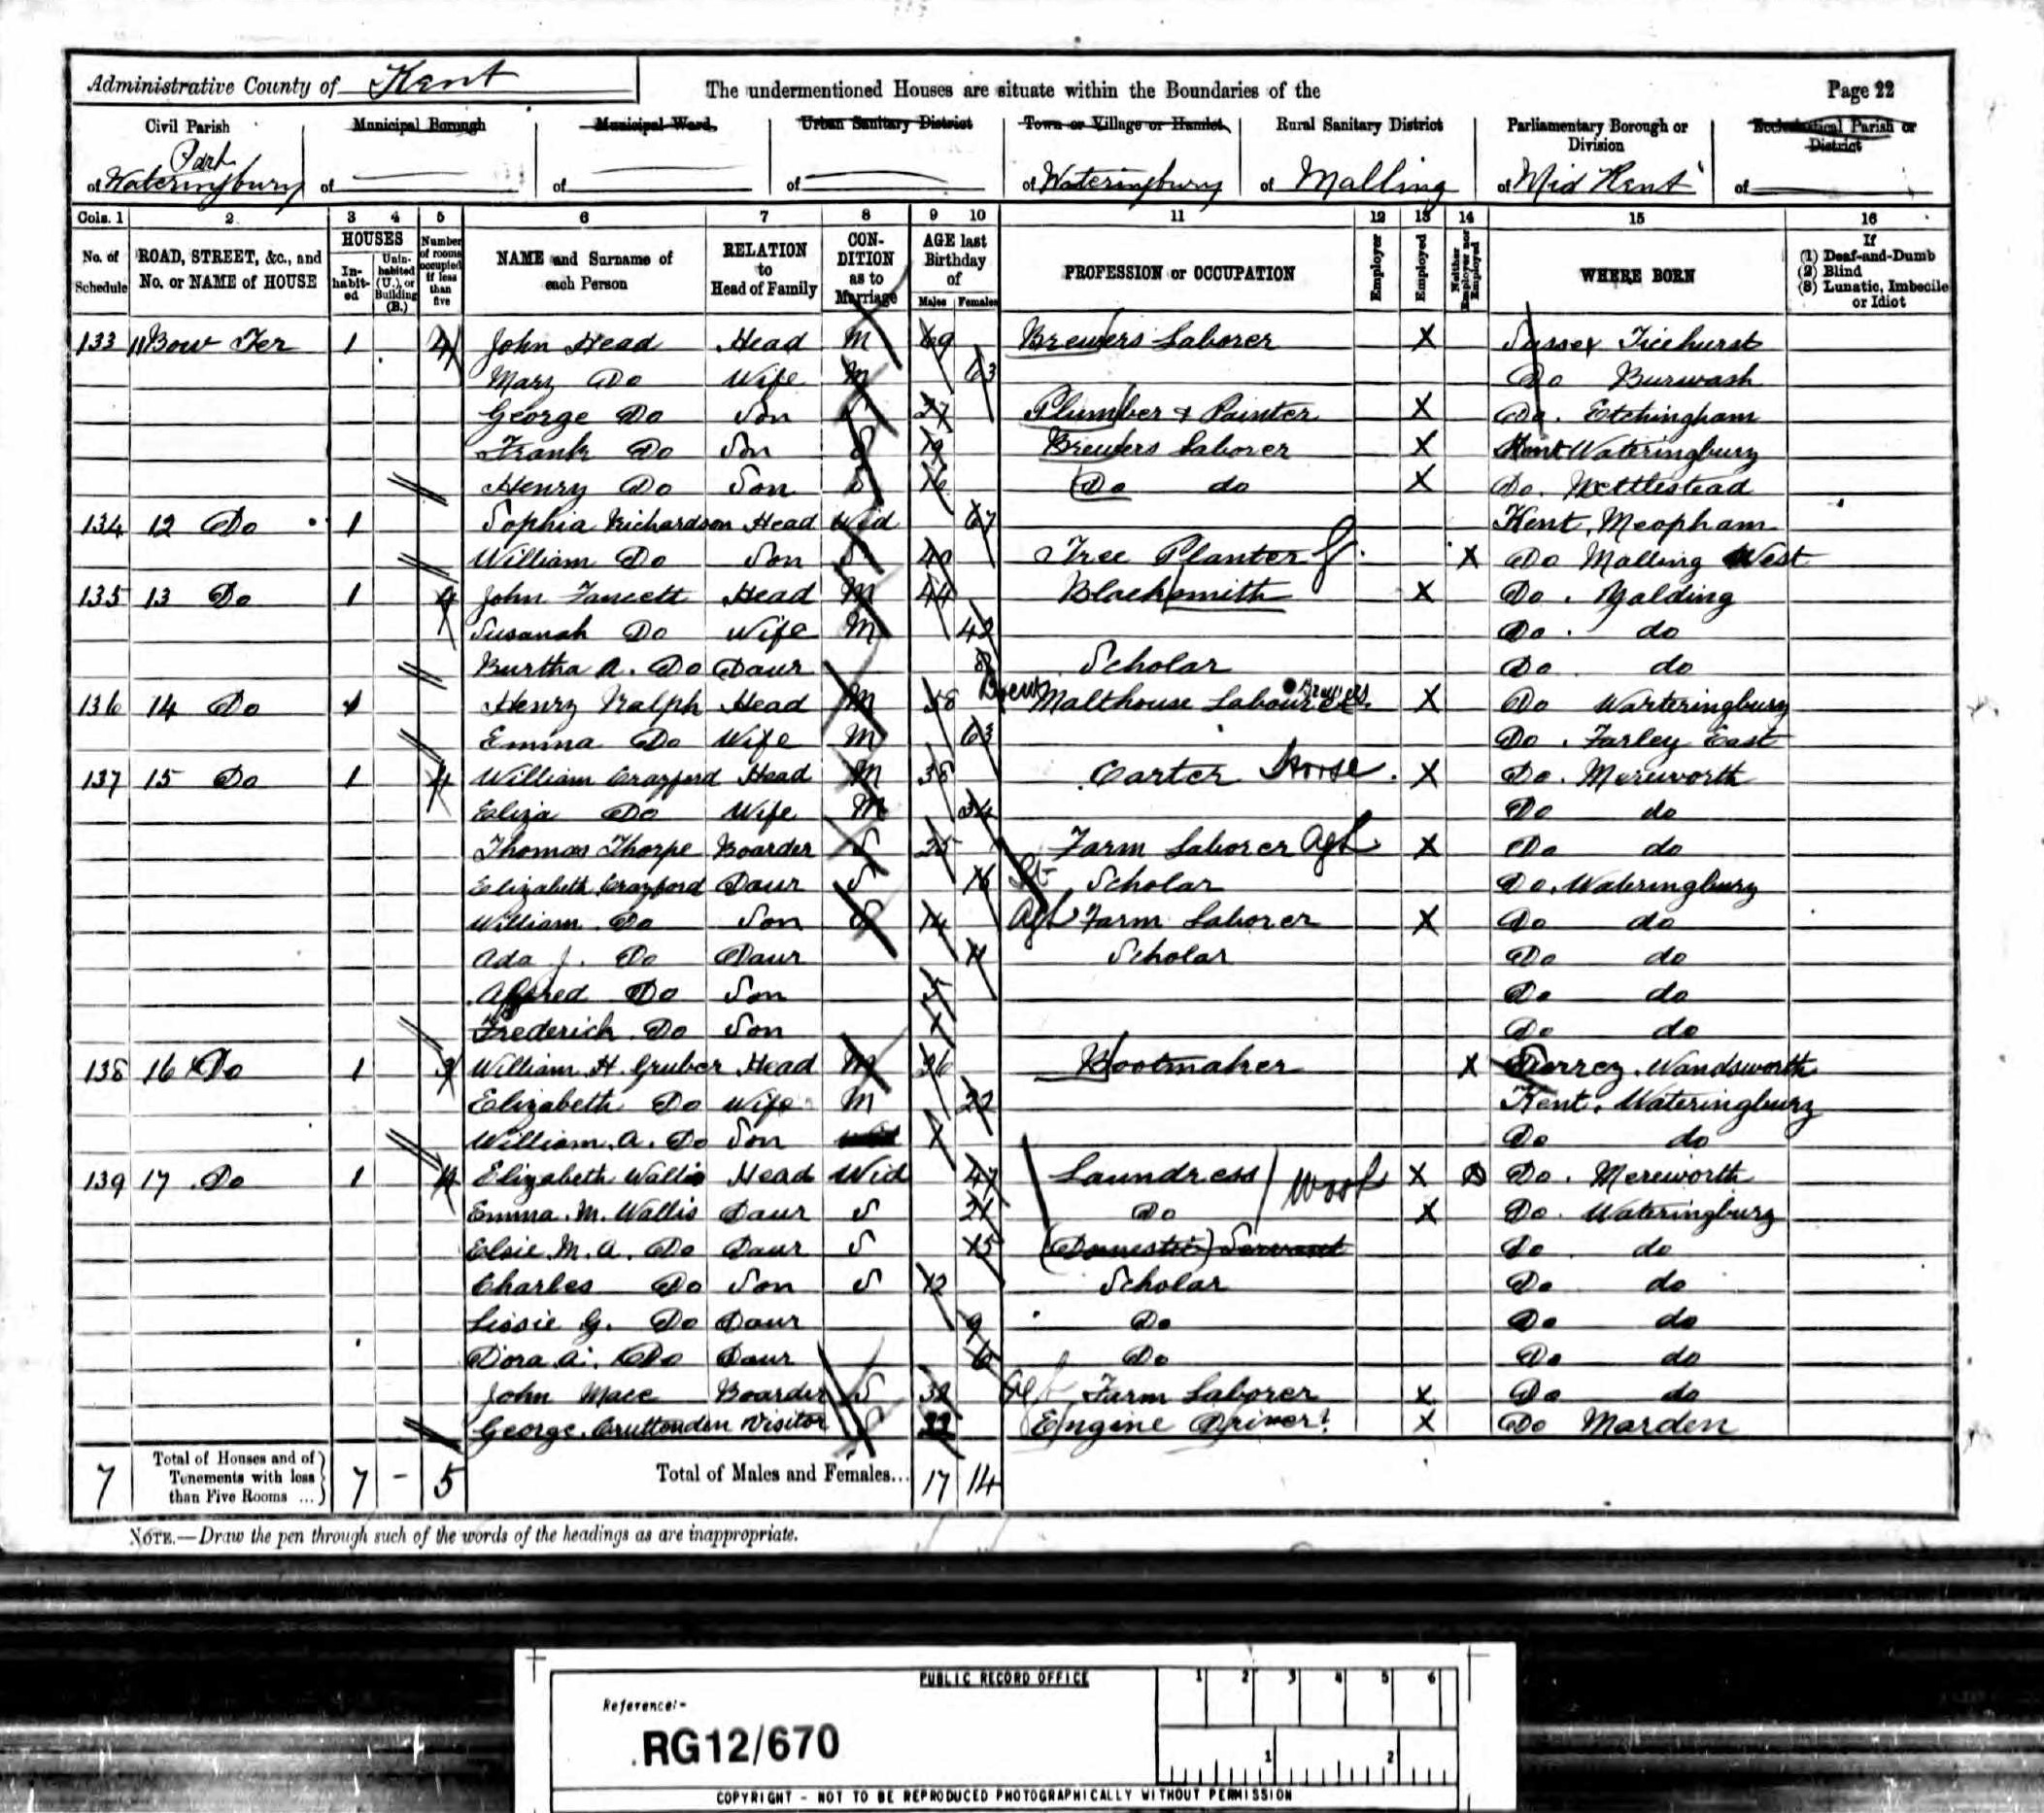 Administrative County of Kent
The undermentioned Houses are situate within the Boundaries of the
Page 22
Civil Parish
Municipal Borough
Municipal Ward
Urban Sanitary District
Town or Village or Hamlet
Rural Sanitary District
Parliamentary Borough or Division
Ecclesiastical Parish or District
Part
of Wateringbury
of
of
of
of Wateringbury
of Malling
of Mid Kent
of
Cols. 1 2 3 4 5 6 7 8 9 10 11 12 13 14 15 16
No. of Schedule
ROAD, STREET, &c., and No. or NAME of HOUSE
HOUSES
In-habit-ed
Unin-habited (U.), or Building (B.)
Number of rooms occupied if less than five
NAME and Surname of each Person
RELATION to Head of Family
CON-DITION as to Marriage
AGE last Birthday of
Males Females
PROFESSION or OCCUPATION
Employer
Employed
Neither Employer nor Employed
WHERE BORN
If
(1) Deaf-and-Dumb
(2) Blind
(3) Lunatic, Imbecile or Idiot
133 11 Bow Ter 1 4 John Head Head M 69 Brewers Laborer X Sussex Ticehurst
Mary Do Wife M 63 Do Burwash
George Do Son S 27 Plumber & Painter X Do. Etchingham
Frank Do Son S 19 Brewers Laborer X Kent Wateringbury
Henry Do Son S 16 Do do X Do. Nettlestead
134 12 Do 1 Sophia Richardson Head Wid 67 Kent, Meopham
William Do Son S 40 Tree Planter X Do Malling West
135 13 Do 1 4 John Fancett Head M 44 Blacksmith X Do. Yalding
Susanah Do Wife M 42 Do. do
Burtha A. Do Daur 8 Scholar Do do
136 14 Do 1 Henry Ralph Head M 58 Brew Malthouse Labourer Brewers X Do Warteringbury
Emma Do Wife M 63 Do. Farley East
137 15 Do 1 4 William Crayford Head M 38 Carter Horse X Do. Mereworth
Eliza Do Wife M 34 Do do
Thomas Thorpe Boarder S 25 Farm Laborer Agl X Do do
Elizabeth Crayford Daur S 16 St Scholar Do. Wateringbury
William Do Son S 14 Agl Farm Laborer X Do do
Ada J. Do Daur 11 Scholar Do do
Alfred Do Son 5 Do do
Frederick Do Son 1 Do do
138 16 Do 1 3 William H. Gruber Head M 26 Bootmaker X Surrey. Wandsworth
Elizabeth Do Wife M 22 Kent. Wateringbury
William. A. Do Son 1 Do do
139 17 Do 1 4 Elizabeth Wallis Head Wid 47 Laundress Wash X Do. Mereworth
Emma. M. Wallis Daur S 21 Do X Do. Wateringbury
Elsie M. A. Do Daur S 15 (Domestic) Servant Do do
Charles Do Son S 12 Scholar Do do
Lissie G. Do Daur 9 Do Do do
Dora A. Do Daur 6 Do Do do
John Mace Boarder S 32 Agl Farm Laborer X Do do
George. Cruttenden Visitor S 22 Engine Driver X Do Marden
7 Total of Houses and of Tenements with less than Five Rooms ... 7 - 5 Total of Males and Females... 17 14
NOTE.—Draw the pen through such of the words of the headings as are inappropriate.
PUBLIC RECORD OFFICE
1 2 3 4 5 6
Reference:-
RG12/670
1 2
COPYRIGHT - NOT TO BE REPRODUCED PHOTOGRAPHICALLY WITHOUT PERMISSION